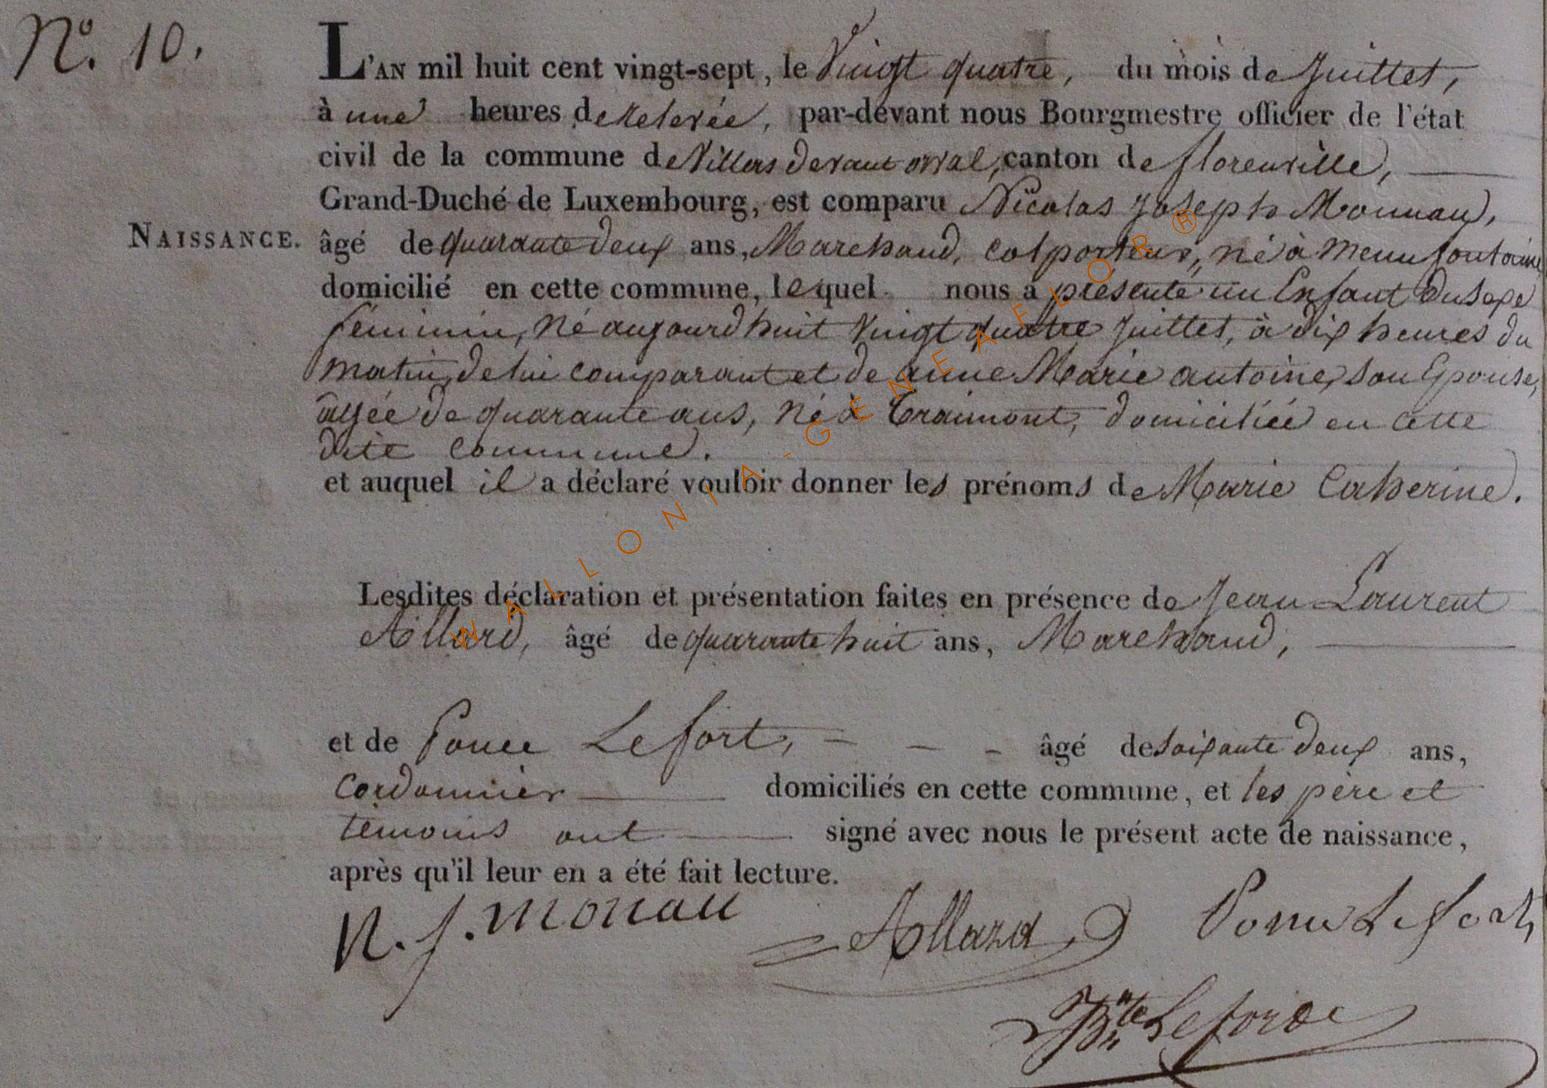 N.º 10.
L'AN mil huit cent vingt-sept, le Vingt quatre, du mois de Juillet,
à une heures de relevée, par-devant nous Bourgmestre officier de l'état
civil de la commune de Villers devant orval, canton de florenville,
Grand-Duché de Luxembourg, est comparu Nicolas Joseph Monnau,
NAISSANCE. âgé de quarante deux ans, Marchand, colporteur, né à menufontaine
domicilié en cette commune, lequel nous a présenté un Enfant du Sexe
féminin, Né aujourdhuit Vingt quatre Juillet, à dix heures du
matin, de lui comparant et de anne Marie antoine, son Epouse,
agée de quarante ans, né à Traimont, domiciliée en cette
dite commune.
et auquel il a déclaré vouloir donner les prénoms de Marie Catherine.
Lesdites déclaration et présentation faites en présence de Jean Laurent
Allard, âgé de quarante huit ans, Marchand,
et de Ponce Lefort, - - - âgé de soixante deux ans,
Cordonnier domiciliés en cette commune, et les père et
témoins ont signé avec nous le présent acte de naissance,
après qu'il leur en a été fait lecture.
N. J. monau Allard Ponce Lefort
Lefort
WALLONIA-GENEAFLOR®